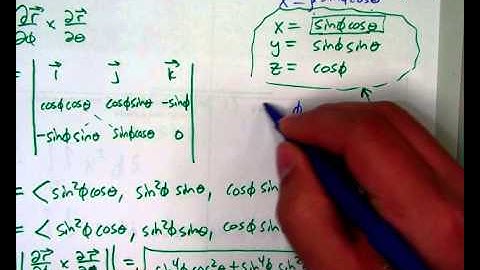 ∂r⃗/∂φ × ∂r⃗/∂θ
x = sinφcosθ
y = sinφsinθ
z = cosφ
= | i⃗ j⃗ k⃗ |
cosφcosθ cosφsinθ -sinφ
-sinφsinθ sinφcosθ 0
φ
= < sin²φcosθ, sin²φ sinθ, cosφ sin
= < sin²φcosθ, sin²φsinθ, cosφ sin
|| ∂r⃗/∂φ × ∂r⃗/∂θ || = √ sin⁴φ cos²θ + sin⁴φ sin